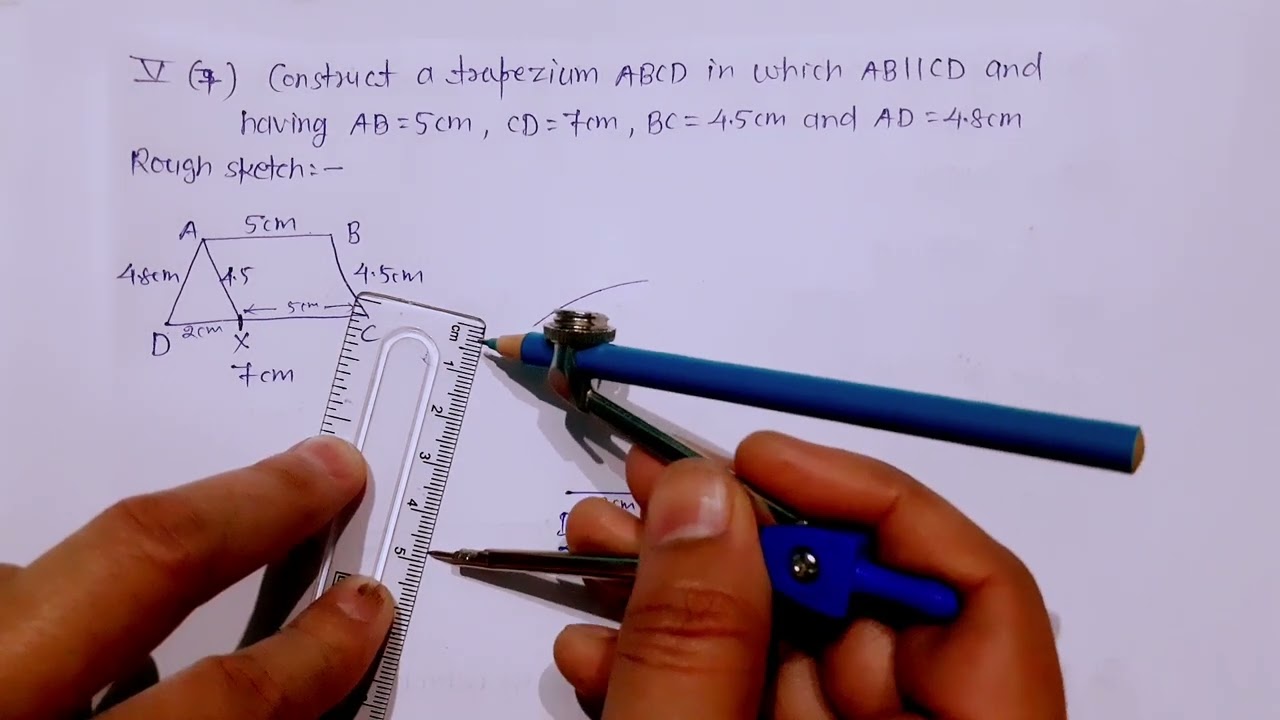 V (9) Construct a trapezium ABCD in which AB||CD and
having AB=5cm, CD=7cm, BC=4.5cm and AD=4.8cm
Rough sketch:-
A 5cm B
4.8cm 4.5 4.5cm
5cm
D 2cm X C
7cm
cm
1
2
3
4
5